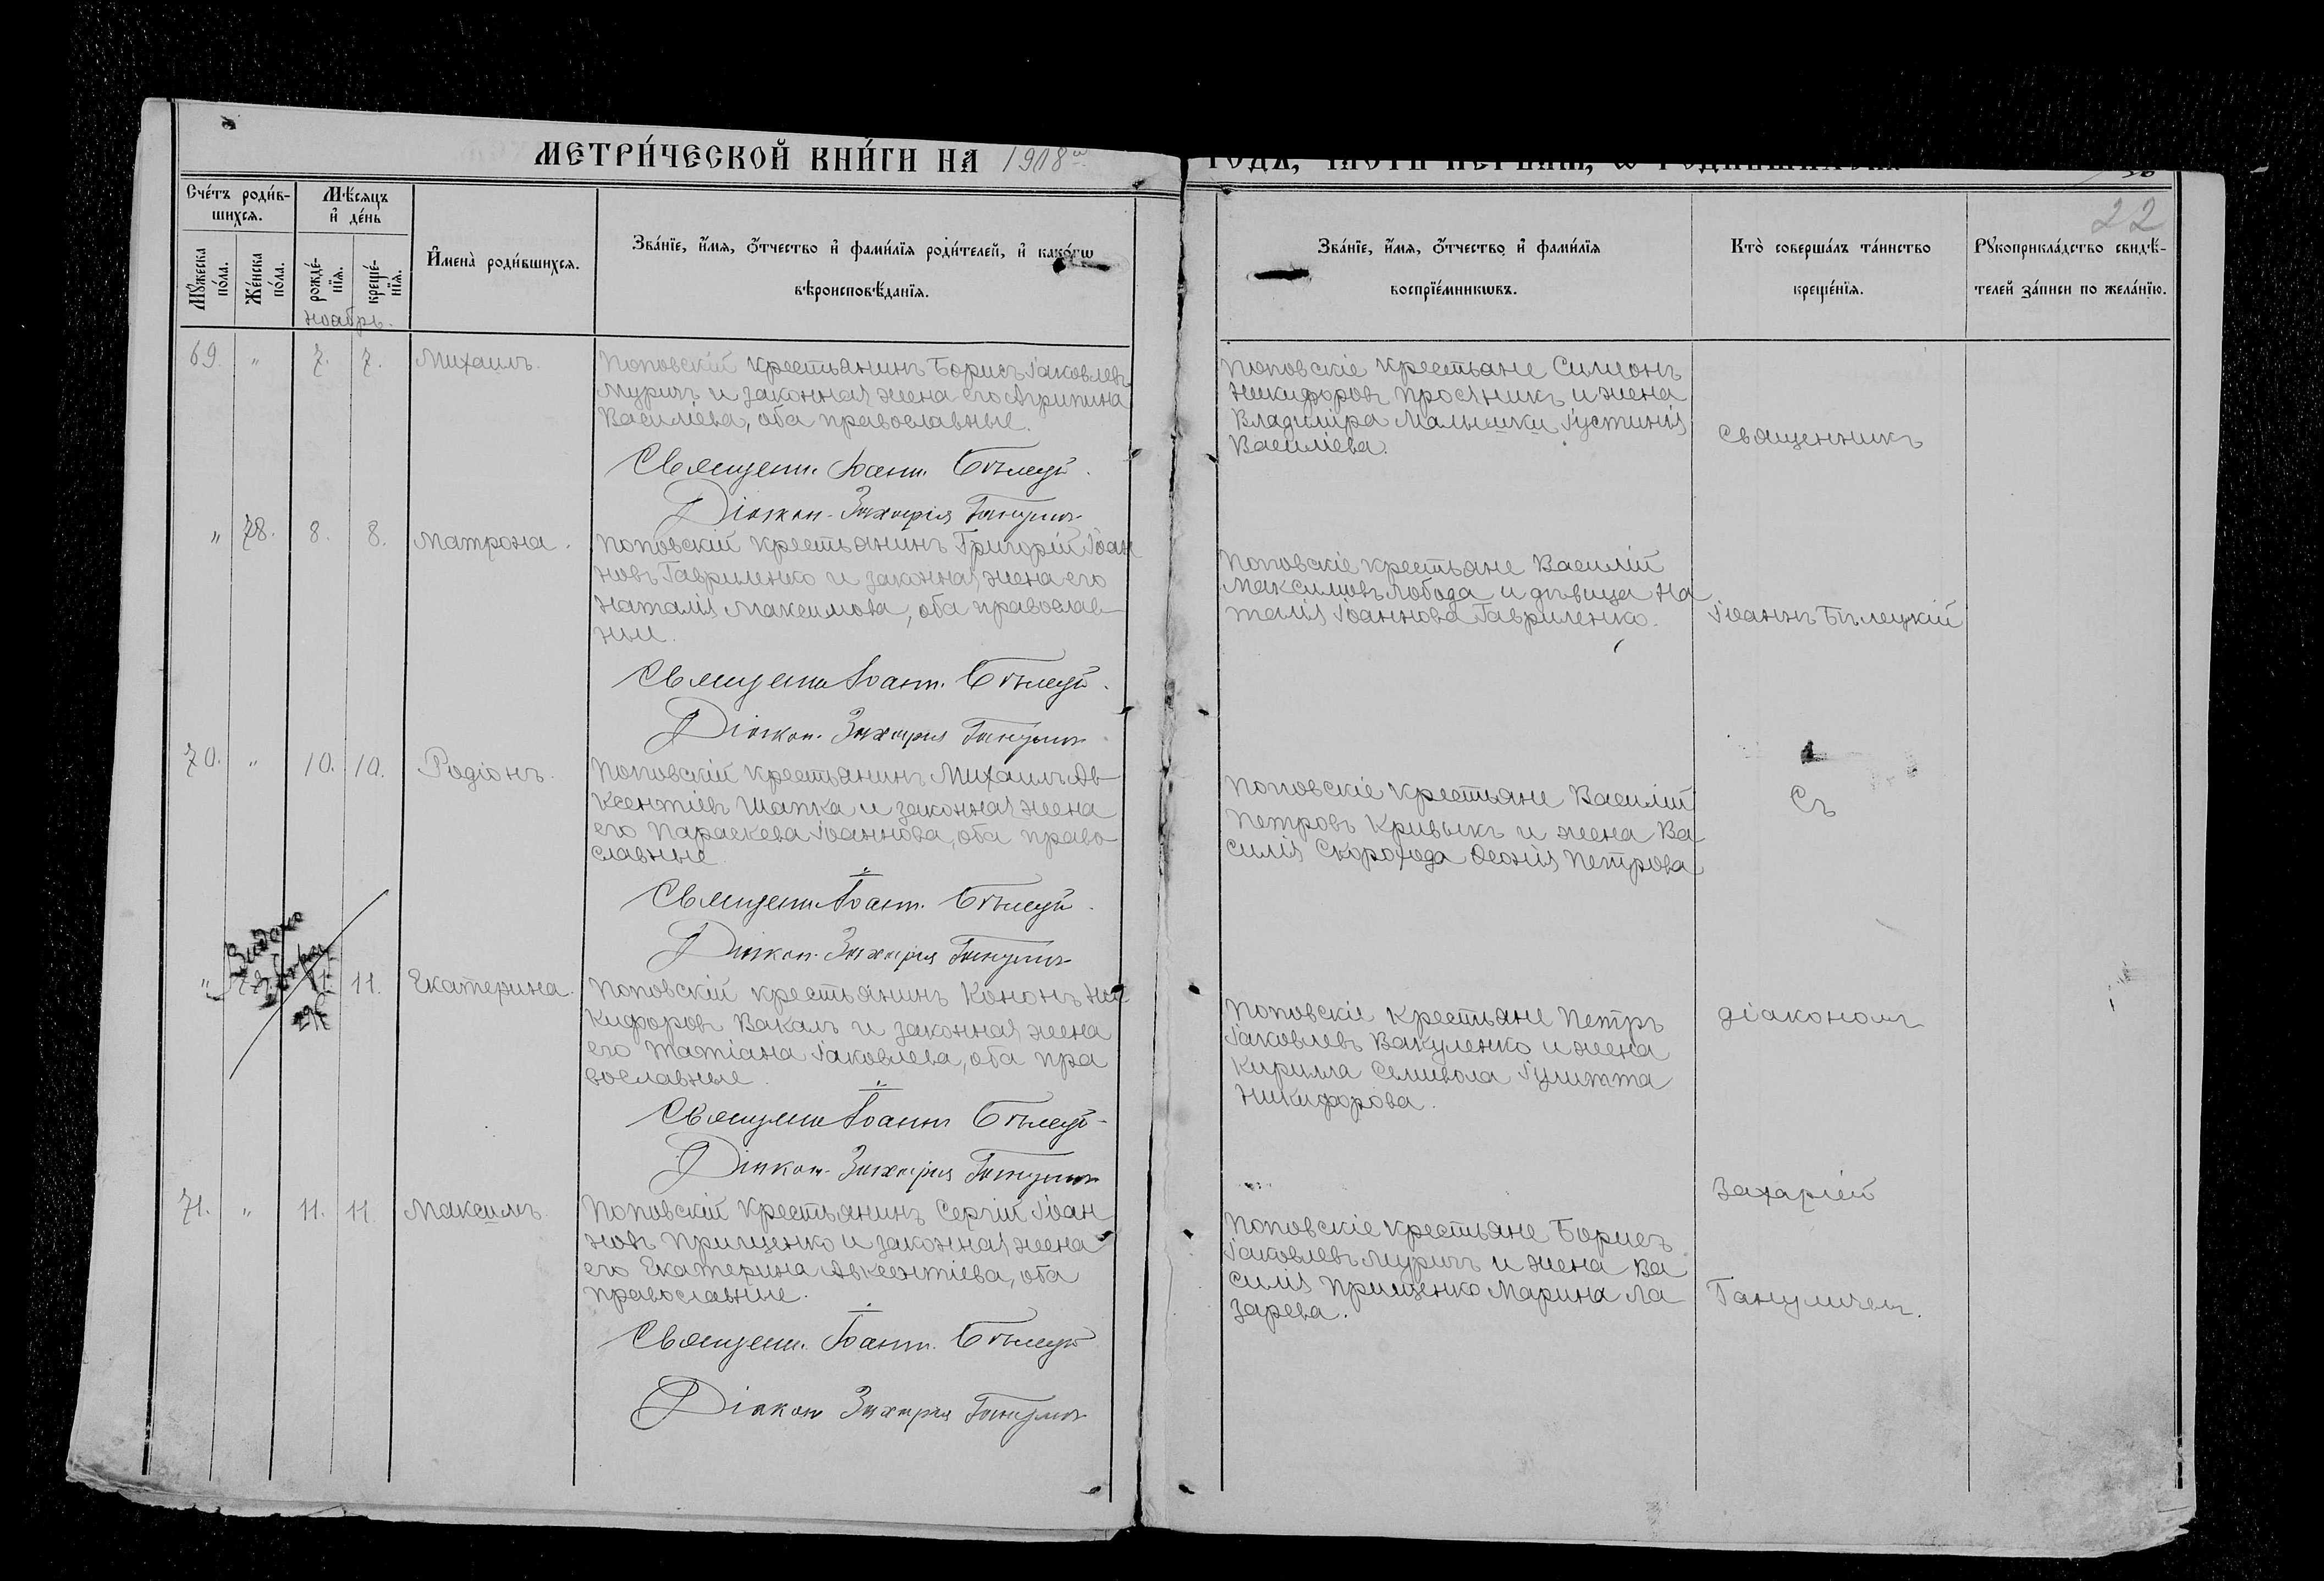 МЕТРИ́ЧЕСКОЙ КНИ́ГИ НА 1918
22
Сче́тъ роди́в-
шихсѧ.
Мѣ́сяцъ
и҆ де́нь
Мꙋ́жеска
по́ла.
Же́нска
по́ла.
рожде́-
нїѧ.
креще́-
нїѧ.
И҆мена̀ роди́вшихсѧ.
Зва́нїе, и҆́мѧ, ѻ҆́тчество и҆ фами́лїѧ роди́телей, и҆ како́гѡ
вѣроисповѣ́данїѧ.
Зва́нїе, и҆́мѧ, ѻ҆́тчество и҆ фами́лїѧ
воспрїе́мникѡвъ.
Кто̀ соверша́лъ та́инство
креще́нїѧ.
Рꙋкоприкла́дство свидѣ́-
телей за́писи по жела́нїю.
Ноябрь.
69 " 7. 7. Михаилъ.
Поповскій крестьянинъ Борисъ Іаковлевъ
Муричъ и законная жена его Агрипина
Василіева, оба православные.
Священ. Іоанн. Бѣлецкій.
Діакон. Захарія Ганулич
Поповскіе крестьяне Симеонъ
Никифоровъ Просяникъ и жена
Владиміра Малышки Іустинія
Василіева.
Священникъ
" 78. 8. 8. Матрона.
Поповскій крестьянинъ Григорій Іоан
новъ Гавриленко и законная жена его
Наталія Максимова, оба православ-
ные.
Священ. Іоанн. Бѣлецкій.
Діакон. Захарія Ганулич
Поповскіе крестьяне Василій
Максимовъ Лобода и дѣвица На
талія Іоаннова Гавриленко.
Іоаннъ Бѣлецкій
70. " 10. 10. Родіонъ.
Поповскій крестьянинъ Михаилъ Ав-
ксентіевъ Шапка и законная жена
его Параскева Іоаннова, оба право-
славные
Священ. Іоанн. Бѣлецкій.
Діакон. Захарія Ганулич
Поповскіе крестьяне Василій
Петровъ Кривыкъ и жена Ва
силія Скорохода Ѳеонія Петрова
Съ
" 11. 11. Екатерина.
Поповскій крестьянинъ Кононъ Ни
кифоровъ Вакалъ и законная жена
его Татіана Іаковлева, оба пра
вославные.
Священ. Іоанн. Бѣлецкій
Діакон. Захарія Ганулич
Поповскіе крестьяне Петръ
Іаковлевъ Вакуленко и жена
Кирилла Семивола Іулитта
Никифорова.
діакономъ
71. " 11. 11. Максимъ.
Поповскій крестьянинъ Сергій Іоан
новъ Прищенко и законная жена
его Екатерина Авксентіева, оба
православные.
Священ. Іоанн. Бѣлецкій
Діакон Захарія Ганулич
Поповскіе крестьяне Борисъ
Іаковлевъ Муричъ и жена Ва
силія Прищенко Марина Ла
зарева.
Захаріей
Гануличем.